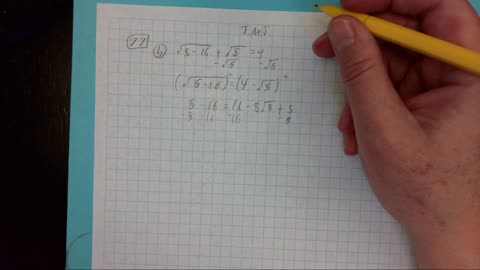 J.M.J.
77
(b) √s-16 + √s = 4
-√s -√s
(√s-16)² = (4-√s)²
s - 16 = 16 - 8√s + s
-s -16 -16 -s